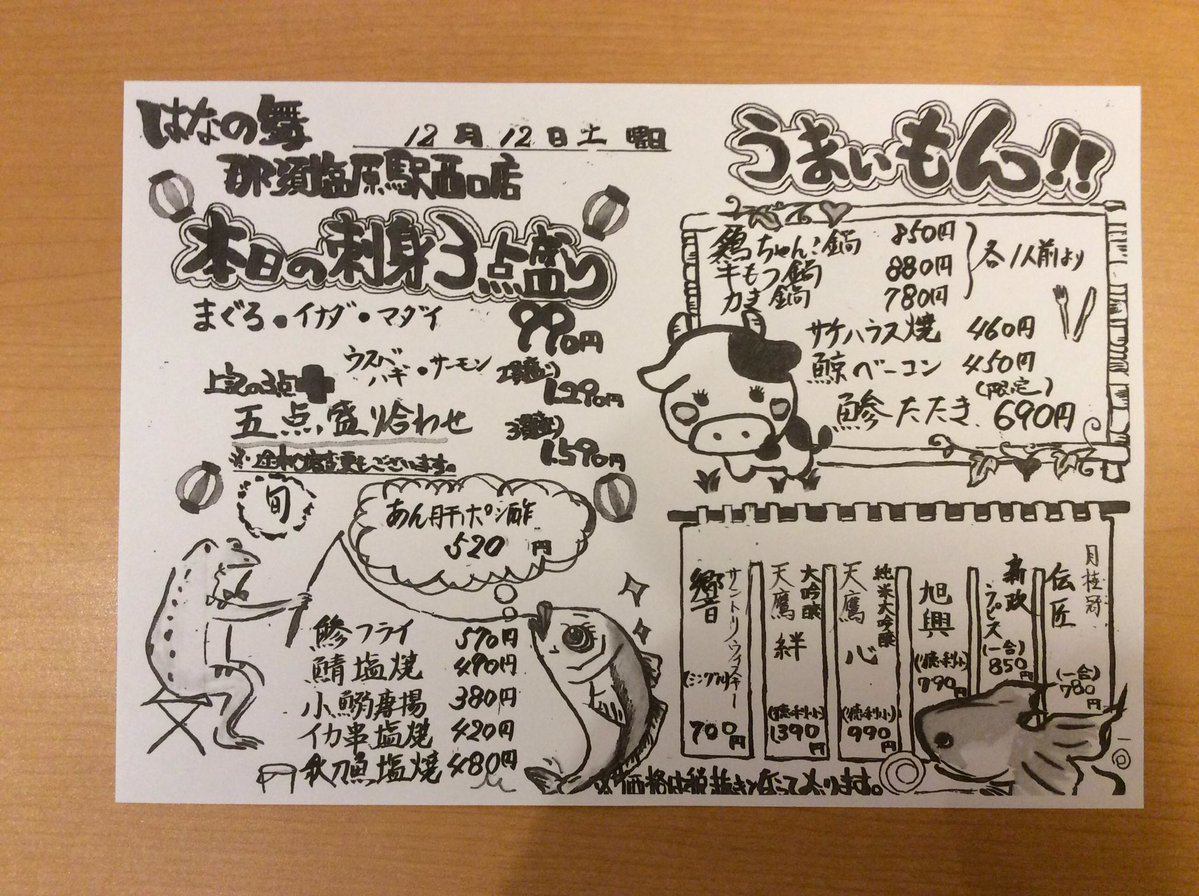 はなの舞
12月12日土曜日
那須塩原駅西口店
本日の刺身3点盛り
まぐろ・イナダ・マダイ
990円
ウスベハギ・サーモン
上記の3点+
1,290円
五点盛り合わせ
1,590円
旬
あん肝ポン酢
520円
鯵フライ 570円
鯖塩焼 490円
小鯵唐揚 380円
イカ串塩焼 420円
秋刀魚塩焼 480円
うまいもんっ!!
鶏ちゃん鍋 850円
牛もつ鍋 880円
カキ鍋 780円
各1人前より
サケハラス焼 460円
鯨ベーコン 450円
(限定)
鯵たたき 690円
月桂冠
伝匠
(一合)
780円
新政
ラピス(一合)
850円
旭興
(徳利小)
790円
純米大吟醸
天鷹
心
(徳利小)
990円
大吟醸
天鷹 絆
(徳利小)
1390円
サントリーウィスキー
響
(シングル)
700円
※価格は税抜きとなっております。